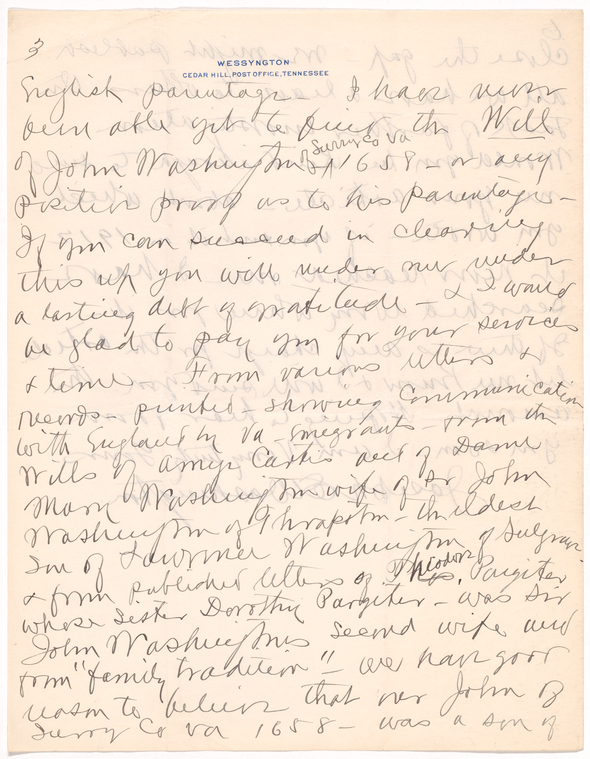 3
WESSYNGTON
CEDAR HILL, POST OFFICE, TENNESSEE
English parentage – I have never
been able yet to find the Will
of John Washington of Surry Co Va 1658 – or any
positive proof as to his parentage –
If you can succeed in clearing
this up you will under me under
a lasting debt of gratitude – & I would
be glad to pay you for your services
& time From various letters &
records – printed – showing communication
with England by Va – emigrants – from the
Wills of Curtis and of Dame
Mary Washington wife of Sr John
Washington of Thrapston – the eldest
Son of Lawrence Washington of Sulgrave
& from published letters of Theodore Pargiter
whose sister Dorothy Pargiter – was Sir
John Washingtons second wife and
from "family tradition" – we have good
reason to believe that our John of
Surry Co Va 1658 – was a son of